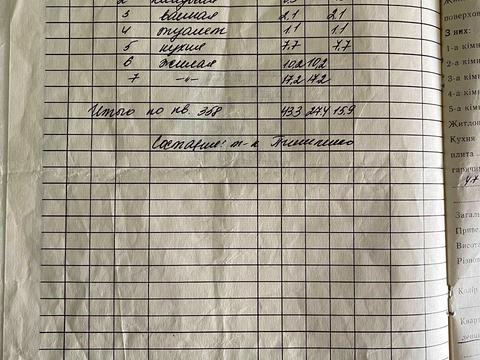 2 кладовая
3 ванная 2,1 2,1
4 туалет 1,1 1,1
5 кухня 7,7 7,7
6 жилая 10,2 10,2
7 -"- 17,2 17,2
Итого по кв. 358 43,3 27,4 15,9
Составил: т-к
поверхов
З них:
1-а кімн
2-а кімн
3-а кімн
4-а кімн
5-а кімн
Житлов
Кухня
плита
гарячи
4,7
Загаль
Приве
Висота
Різнов
Колір
Кварт